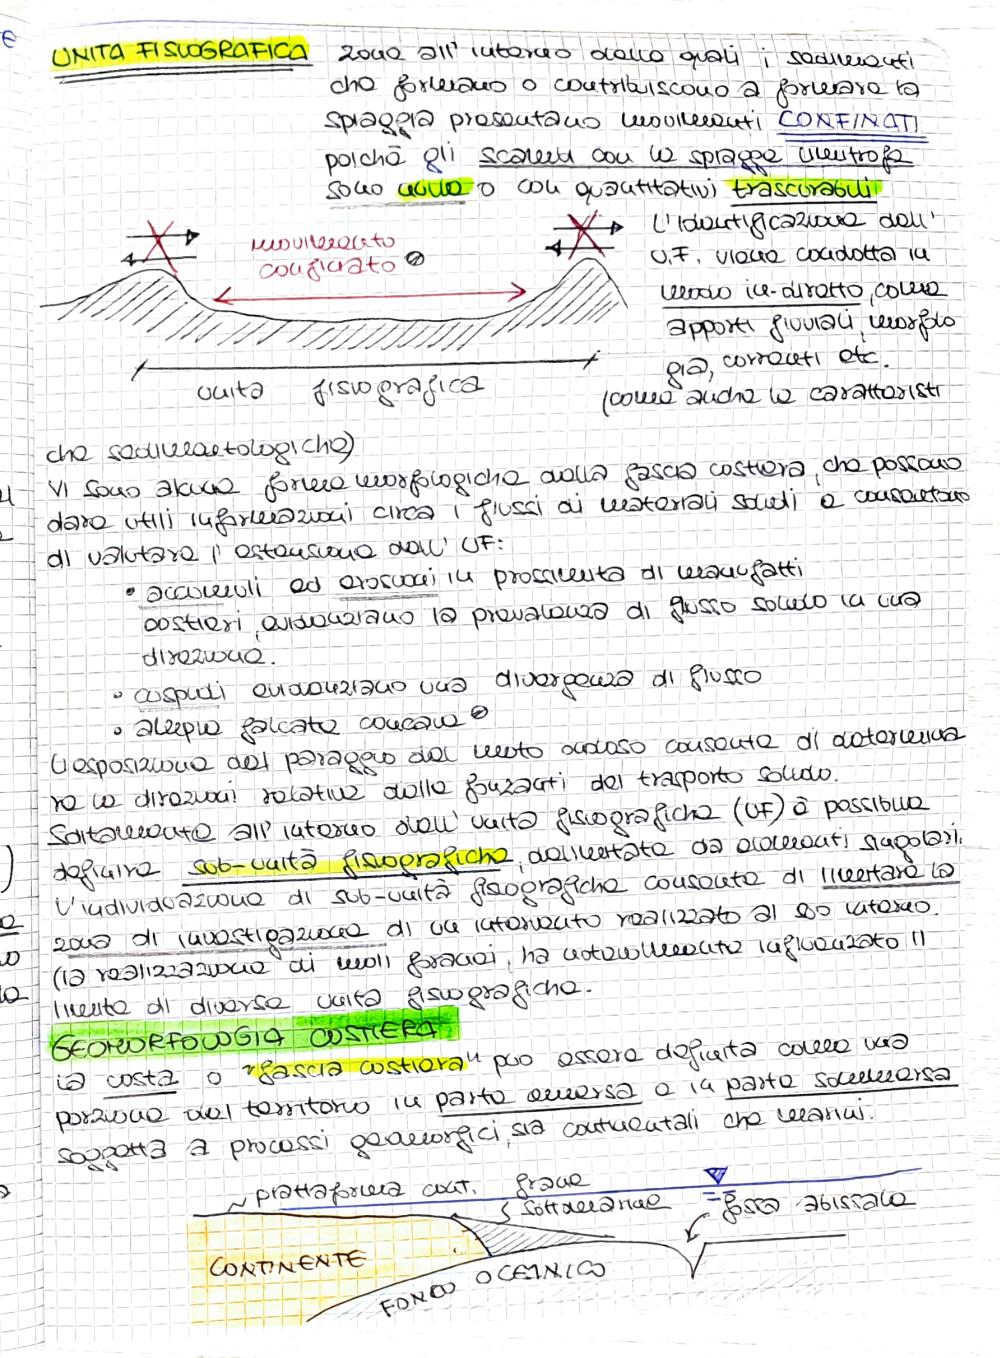 UNITA FISIOGRAFICA zone all'interno delle quali i sedimenti
che formano o contribuiscono a formare la
spiaggia presentano movimenti CONFINATI
poichè gli scambi con le spiagge limitrofe
sono nulli o con quantitativi trascurabili
L'identificazione dell'
U.F. viene condotta in
modo in-diretto, come
apporti fluviali, morfolo
gia, correnti etc.
(come anche le caratteristi
movimento
confinato
unita fisiografica
che sedimentologiche)
Vi sono alcune forme morfologiche della fascia costiera, che possono
dare utili informazioni circa i flussi di materiali solidi e consentono
di valutare l'estensione dell' UF:
• accumuli ed erosioni in prossimita di manufatti
costieri, evidenziano la prevalenza di flusso solido in una
direzione.
• cuspidi evidenziano una divergenza di flusso
• ampie falcate concave
L'esposizione del paraggio del moto ondoso consente di determina
re le direzioni relative delle forzanti del trasporto solido.
Solitamente all'interno dell'unita fisiografica (UF) è possibile
definire sub-unità fisiografiche, delimitate da elementi singolari.
L'individuazione di sub-unità fisiografiche consente di limitare la
zona di investigazione di un intervento realizzato al suo interno.
(la realizzazione di moli foranei, ha notevolmente influenzato il
limite di diverse unità fisiografiche.
GEOMORFOLOGIA COSTIERA
la costa o "fascia costiera" può essere definita come una
porzione del territorio in parte emersa e in parte sommersa
soggetta a processi geomorfici, sia continentali che marini.
piattaforma cont. frane
sottomarine fossa abissale
CONTINENTE
FONDO OCEANICO